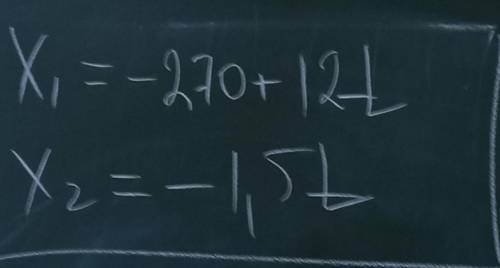 X₁ = -270 + 12t
X₂ = -1,5t